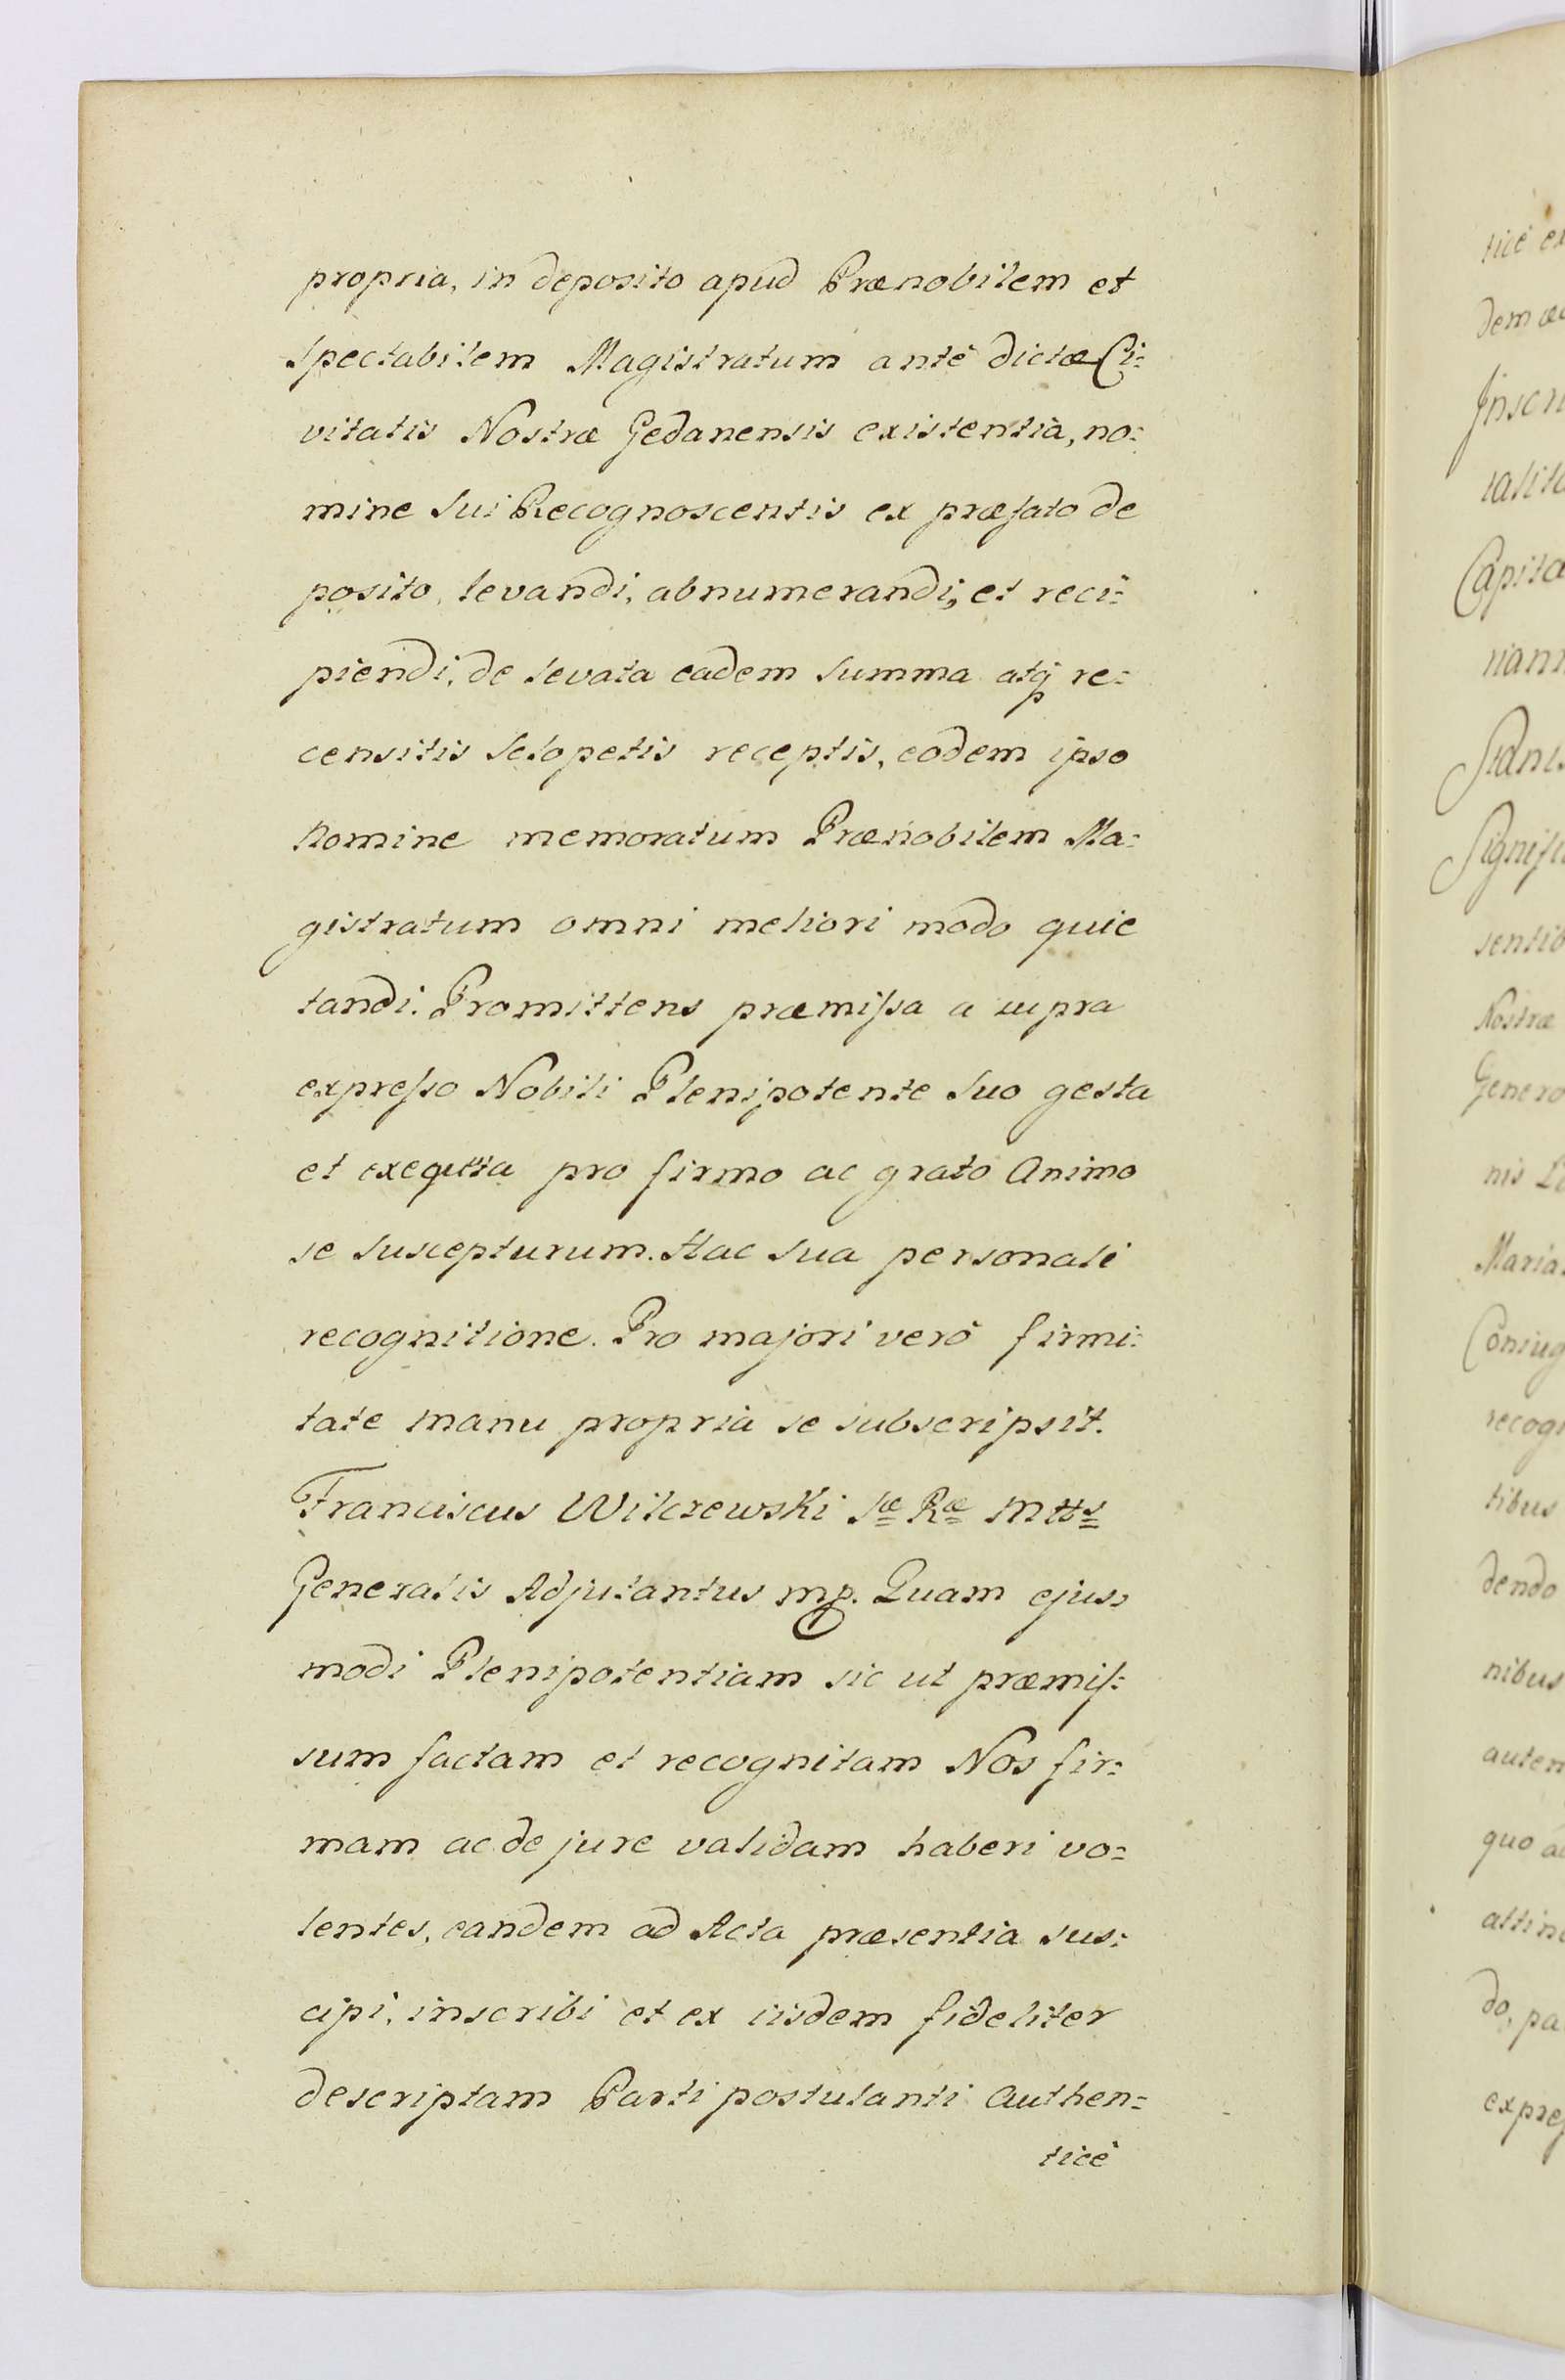 propria, in deposito apud Prænobilem et
Spectabilem Magistratum antè dictæ Ci:
vitatis Nostræ Gedanensis existentia, no:
mine Sui Recognoscentis ex præfato de
posito, levandi, abnumerandi, et reci:
piendi, de levata eadem Summa atq́ re:
censitis Sclopetis receptis, eodem ipso
Nomine memoratum Prænobilem Ma:
gistratum omni meliori modo quie
tandi. Promittens præmiſsa a supra
expreſso Nobili Plenipotente Suo gesta
et exequta pro firmo ac grato Animo
se Suscepturum. Hac Sua personali
recognitione. Pro majori verò firmi:
tate manu propria se subscripsit.
Franciscus Wilczewski Sæ Ræ Mttis
Generalis Adjutantus mp. Quam ejus:
modi Plenipotentiam sic ut præmiſ:
sum factam et recognitam Nos fir:
mam ac de jure validam haberi vo=
lentes, eandem ad Acta præsentia sus:
cipi, inscribi et ex iisdem fideliter
descriptam Parti postulanti Authen=
ticè
ticè
Capita
Nostræ
nis
Maria
recog
tibus
dendo
nibus
quo
do, pa